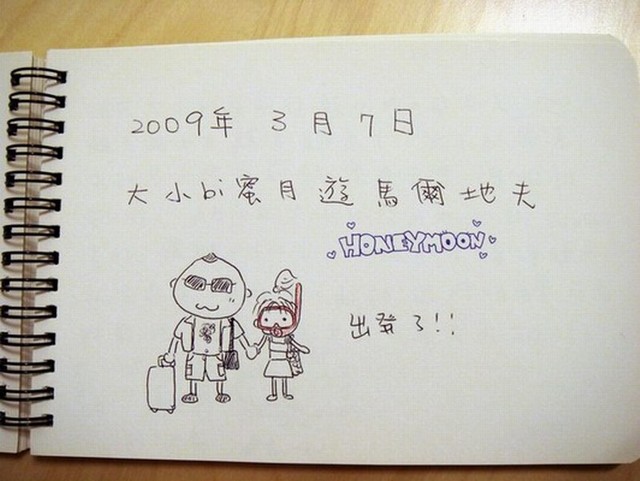 2009年 3月7日
大小bi蜜月遊馬爾地夫
HONEYMOON
出發了!!